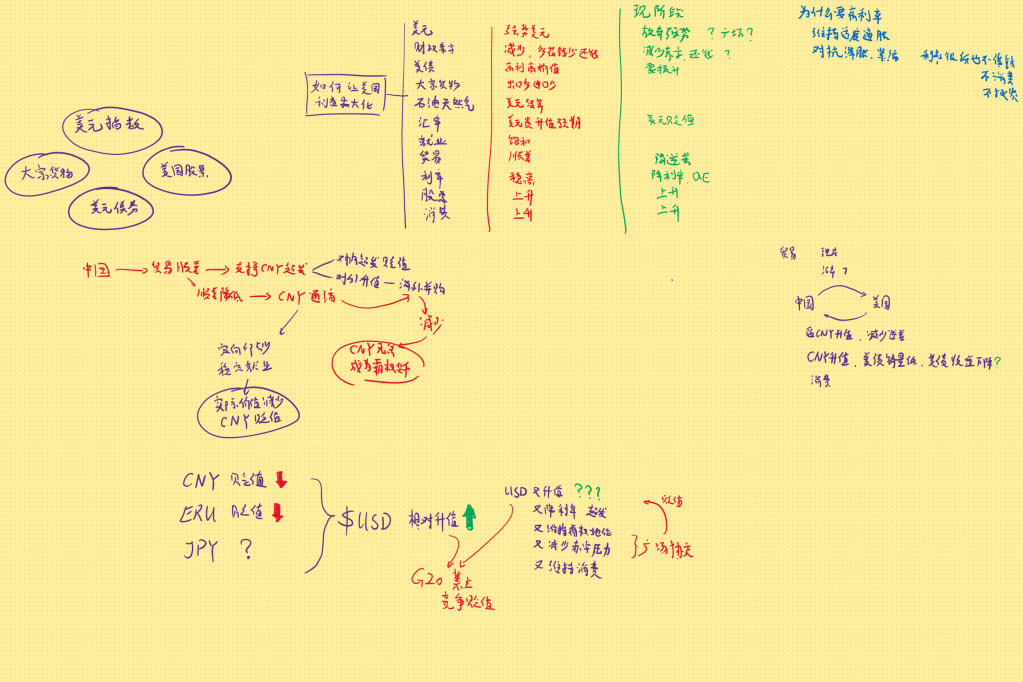 美元指数
大宗货物
美国股票
美元债券
如何让美国
利益最大化
美元
财政赤字
美债
大宗货物
石油天然气
汇率
就业
贸易
利率
股票
消费
强势美元
减少，多花钱少还钱
高利高价值
出口多进口少
美元结算
美元贵升值预期
饱和
顺差
稳高
上升
上升
现阶段
放弃强势 ？广场？
减少赤字，还钱 ？
要提升
美元贬值
降逆差
降利率，QE
上升
上升
为什么要有利率
维持适度通胀
对抗滞胀，紧缩
利率低后也不借钱
不消费
不投资
中国
贸易顺差
支持CNY超发
对内超发贬值
对外升值 — 海外并购
顺差降低
CNY通道
减少
CNY无法
成为霸权货币
定向印钞
稳定就业
实际价值减少
CNY 贬值
贸易 现在
涨价？
中国
美国
逼CNY升值，减少逆差
CNY升值，美债销量低，美债收益下降？
消费
CNY 贬值
ERU 贬值
JPY ?
$USD 相对升值
G20 禁止
竞争贬值
USD 又升值 ???
又降利率 超发
又维持霸权地位
又减少赤字压力
又维持消费
广场协定
贬值